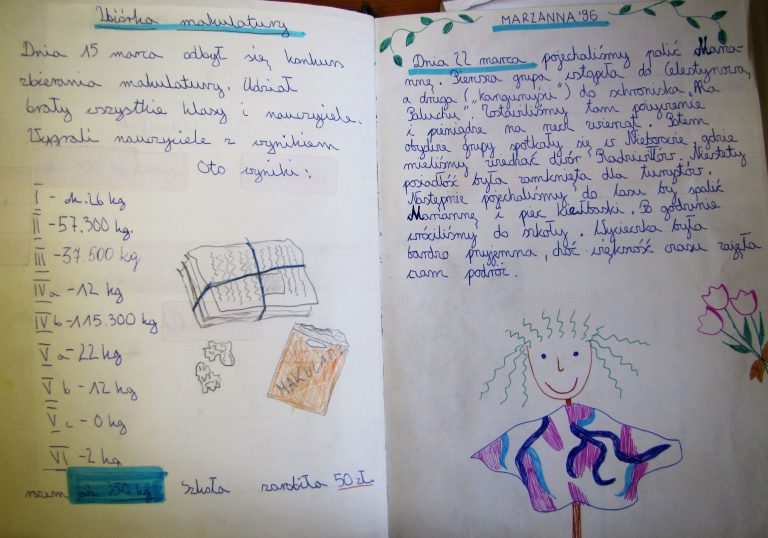 Zbiórka makulatury
Dnia 15 marca odbył się konkurs
zbierania makulatury. Udział
brały wszystkie klasy i nauczyciele.
Wygrali nauczyciele z wynikiem
Oto wyniki:
I - ok. 26 kg
II - 57.300 kg.
III - 37.500 kg
IV a - 12 kg
IV b - 115.300 kg
V a - 22 kg
V b - 12 kg
V c - 0 kg
VI - 2 kg
razem ok 350 kg. Szkoła zarobiła 50 zł.
MAKULAT
MARZANNA '96
Dnia 22 marca pojechaliśmy palić Marza-
nnę. Pierwsza grupa wstąpiła do Celestynowa,
a druga ("kangurujsi") do schroniska "Na
Paluchu". Zostawiliśmy tam pożywienie
i pieniądze na rzecz zwierząt. Potem
obydwie grupy spotkały się w Nieborowie gdzie
mieliśmy zwiedzać dwór Radziwiłłów. Niestety
posiadłość była zamknięta dla turystów.
Następnie pojechaliśmy do lasu by spalić
Marzannę i piec kiełbaski. Po godzinie
wróciliśmy do szkoły. Wycieczka była
bardzo przyjemna, choć większość czasu zajęła
nam podróż.